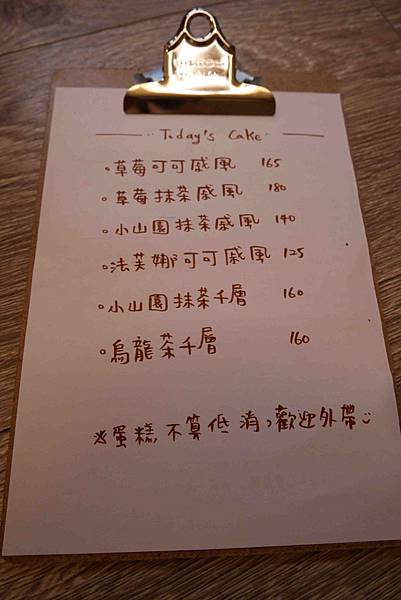 Today's Cake
。草莓可可戚風 165
。草莓抹茶戚風 180
。小山園抹茶戚風 140
。法芙娜可可戚風 125
。小山園抹茶千層 160
。烏龍茶千層 160
※蛋糕不算低消,歡迎外帶